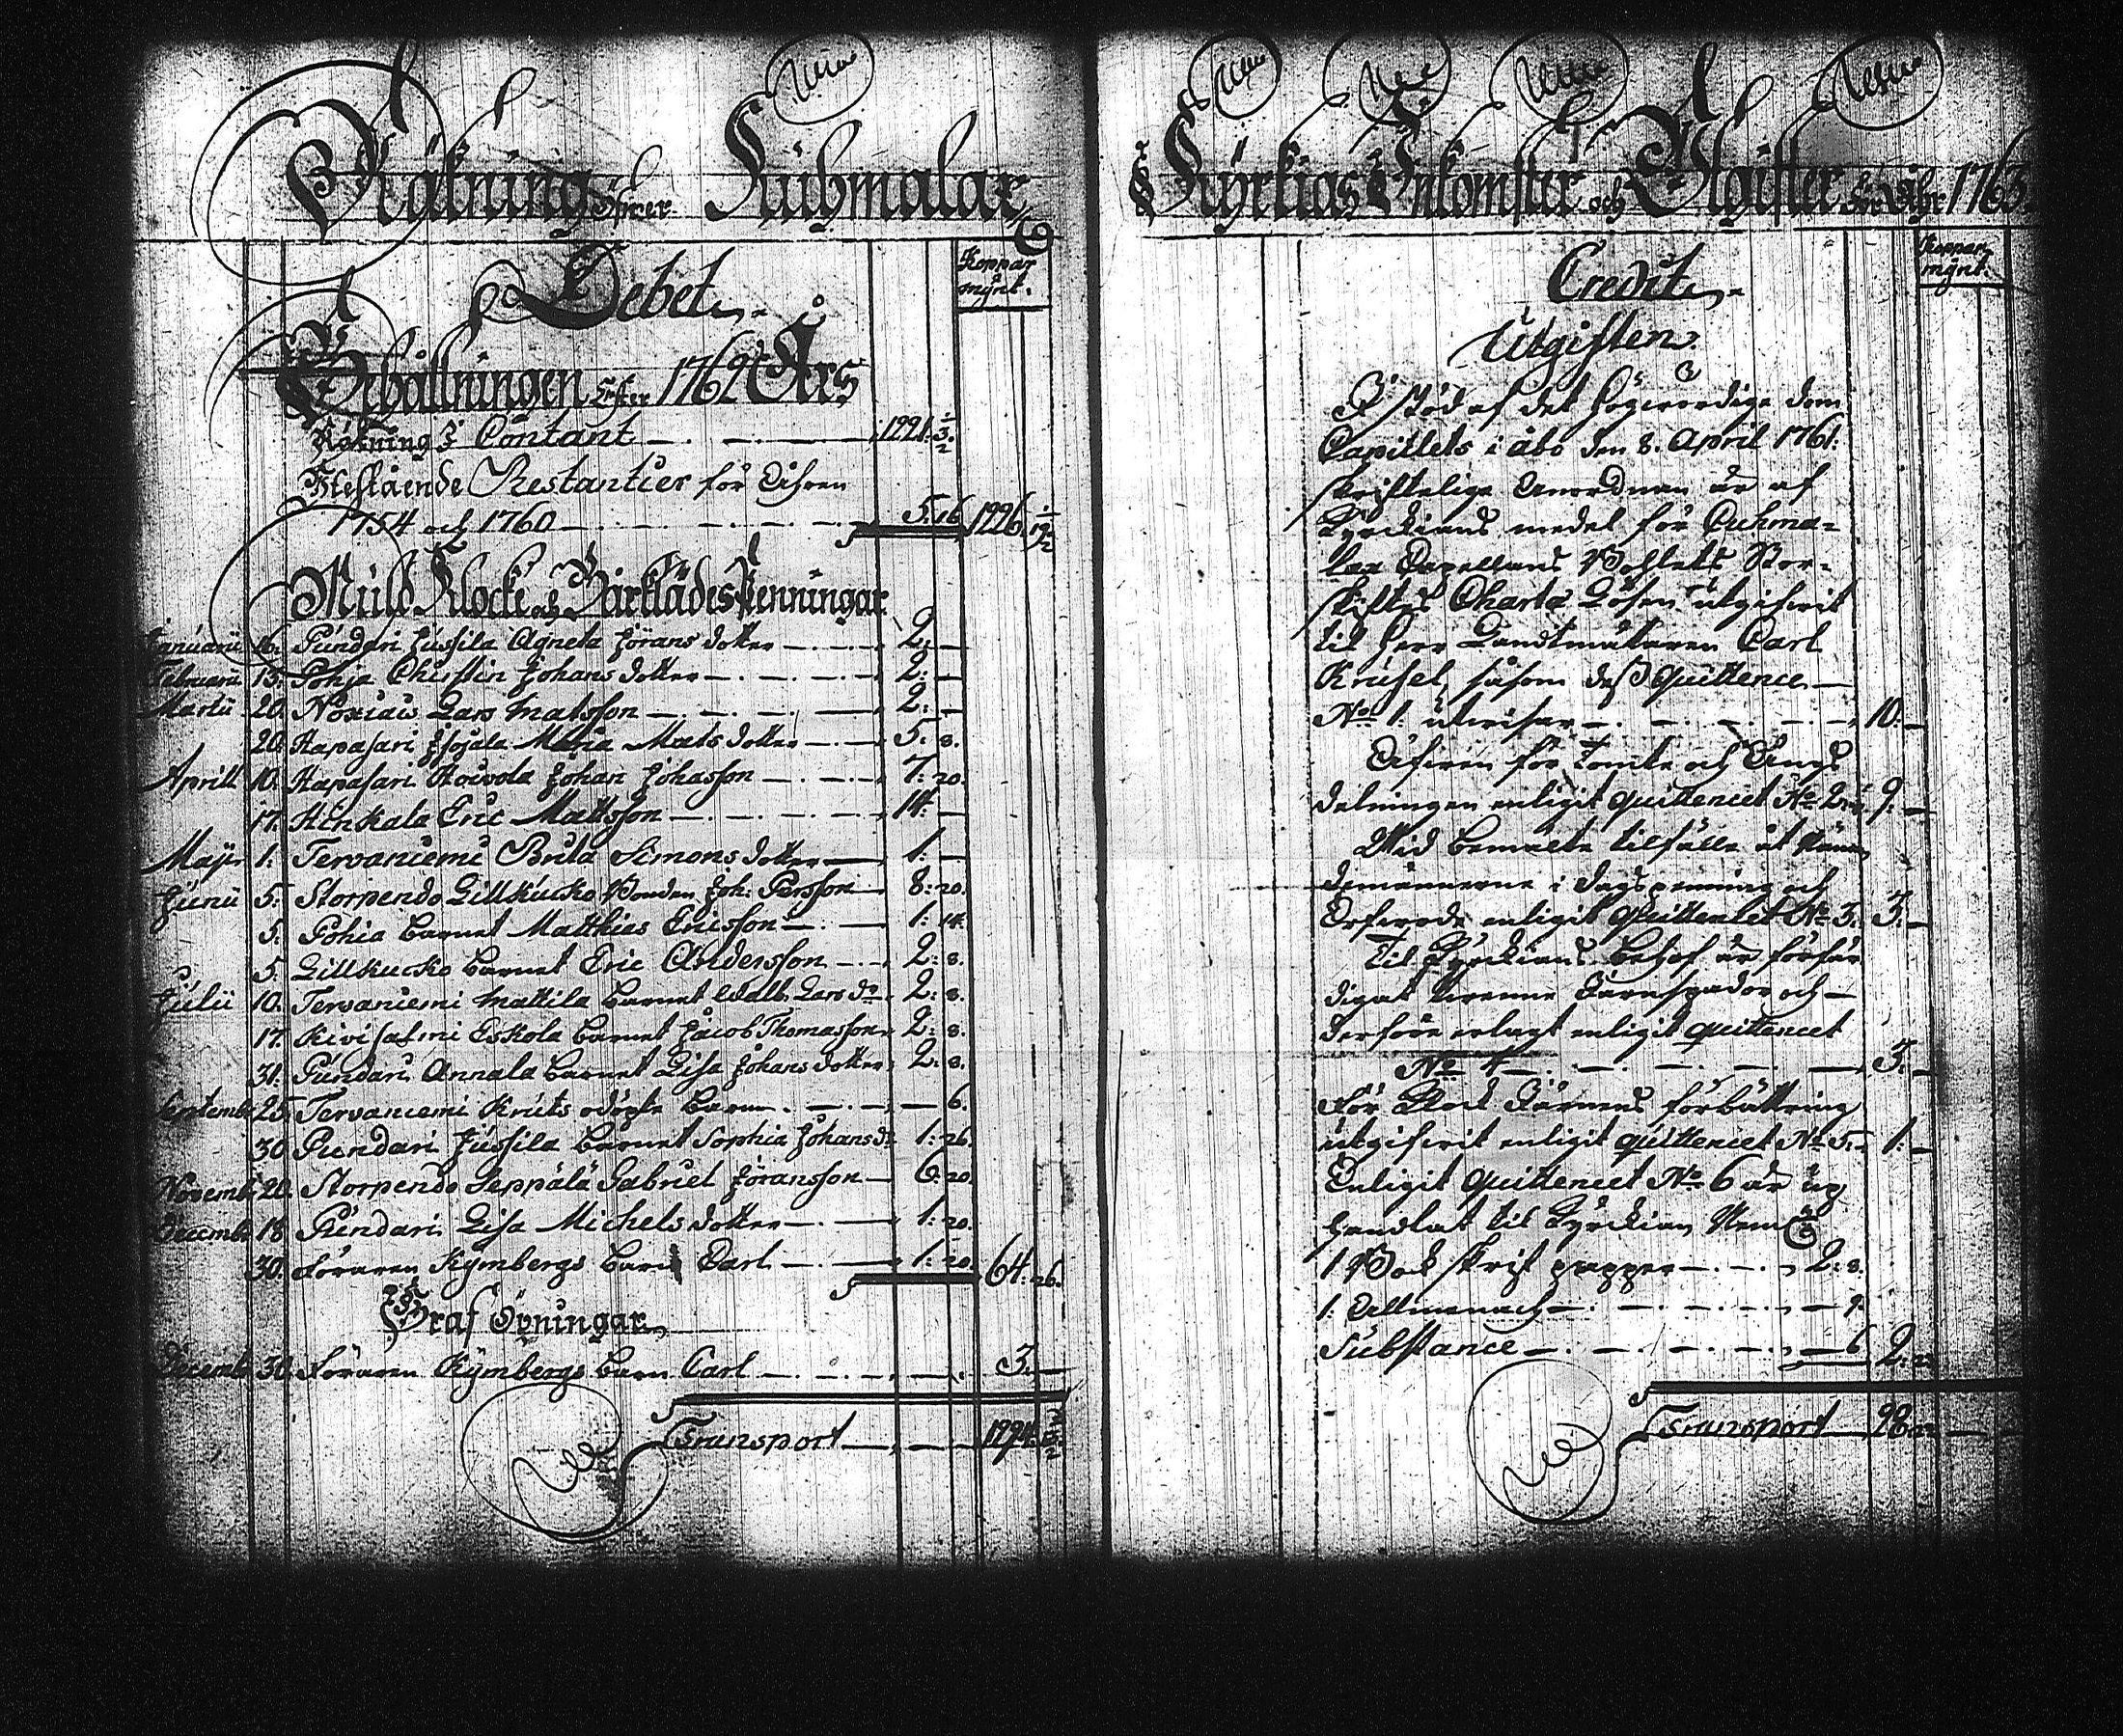 Räkning öfwer Kuhmalax
Debet
Koppar
mynt.
Behållningen Efter 1762 Års
Räkning: Contant 1221: 3 1/2
Utestående Restantier för Åhren
1754 och 1760 5: 16 1226: 19 1/2
Muld Klocke och Bårklädes Penningar
Januarii 16. Pundari Jussila Agneta Jörans dotter 2: —
Februarii 13. Pohja Christin Johans dotter 2: —
Martii 20. Noxiais Lars Matsson 2: —
20. Hapasari Maria Mats dotter 5: 8.
Aprill 10. Hapasari Koivola Johan Johasson 7: 20.
17. Hinkala Eric Mattsson 14: —
Maji 1. Tervaniemi Brita Simons dotter 1: —
Junii 5. Storpendo Lillkucko Bonden Joh: Persson 8: 20.
5. Pohia barnet Matthias Ericsson 1: 14.
5. Lillkucko barnet Eric Andersson 2: 8.
Julii 10. Tervaniemi Mattila barnet Walb. Lars dr 2: 8.
17. Kivisalmi Eskola barnet Jacob Thomasson 2: 8.
31. Pundari Annala barnet Lisa Johans dotter 2: 8.
Septemb. 25. Tervaniemi Kruts odöpte barn — 6.
30 Pundari Jussila barnet Sophia Johans dr 1: 26.
Novemb. 20. Storpendo Seppälä Gabriel Jöransson 6: 20.
Decemb. 18 Pundari Lisa Michels dotter 1: 20.
30. Föraren Kymbergs barn Carl 1: 20. 64: 26.
Graf Öpningar
Decemb. 30. Föraren Kymbergs barn Carl 3: —
Transport
Kyrkias Inkomster och Utgifter för Åhr 1763.
Credit
Koppar
mynt.
Utgiften
I stöd af det högwördige Dom
Capitlets i Åbo den 8. April 1761.
skriftelige anordnan är af
Kyrckians medel för Cuhma-
lax Capellans Bohlets Stor-
skiftes Charta Lösen utgifwit
til Herr Landtmätaren Carl
Krusel, såsom dess quittence
No 1: utwisar 10: —
för Tomte och Ängs
delningen enligit quittencet No 2: 9: —
Wid bemälte tilfälle åt Nämn
demännerne i dagspenning och
enligit quittencet No 3. 3: —
Til Kyrckians behof är förfär
digat twenne Järnspador och
derföre erlagt enligit quittencet
No 4 3: —
För Klock Järnens förbättring
utgifwit enligit quittencet No 5. 1: —
Enligit quittencet No 6 är up
handlat til Kyrckian Nemt:
1 Bok skrif papper 2: 8.
1: Allmanach 9.
Substance 6 2: 23
Transport 28: 23